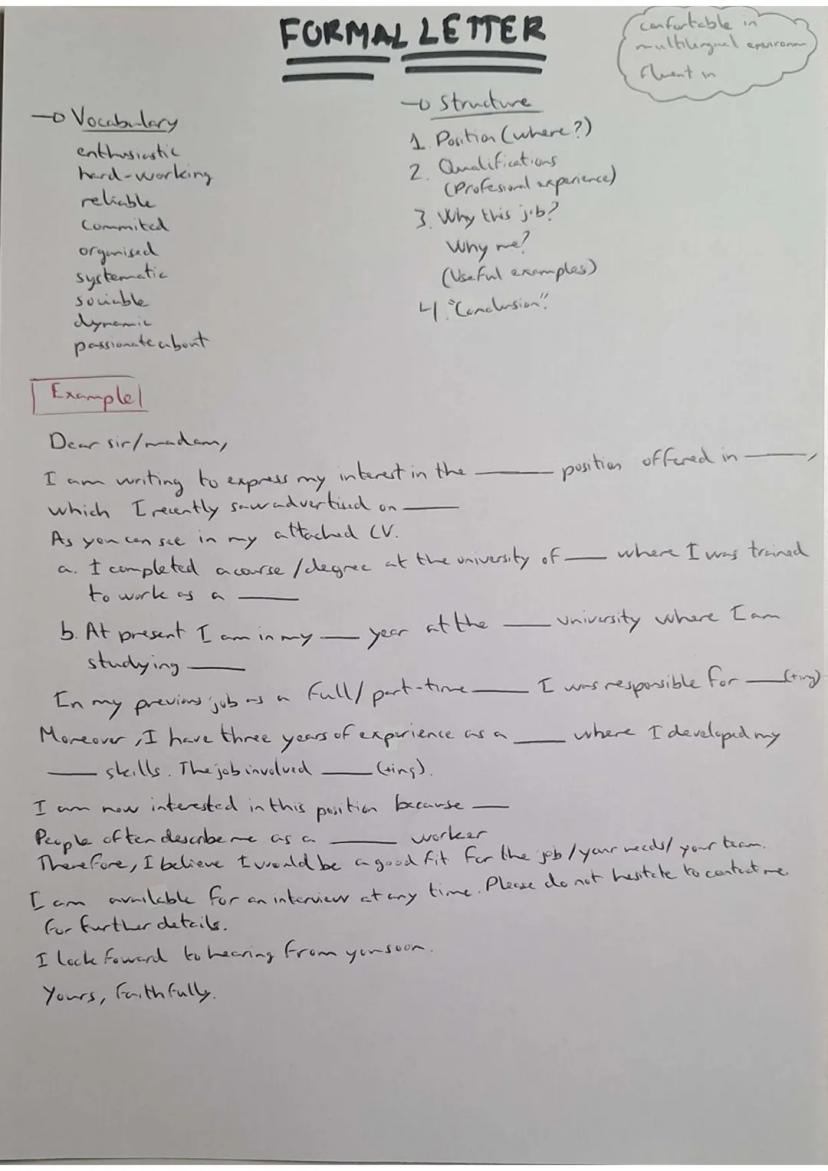 FORMAL LETTER
confortable in
multilingual environm
fluent in
→ Vocabulary
enthusiastic
hard-working
reliable
Commited
organised
systematic
sociable
dynamic
passionate about
→ Structure
1. Position (where?)
2. Qualifications
(Profesional experience)
3. Why this job?
Why me?
(Useful examples)
4. "Conclusion".
Example
Dear sir/madam,
I am writing to express my interest in the ____ position offered in ____,
which I recently saw advertised on ____
As you can see in my attached CV.
a. I completed a course/degree at the university of ____ where I was trained
to work as a ____
b. At present I am in my ____ year at the ____ university where I am
studying ____
In my previous job as a full/part-time ____ I was responsible for ____ (+ing)
Moreover, I have three years of experience as a ____ where I developed my
____ skills. The job involved ____ (+ing).
I am now interested in this position because ____
People often describe me as a ____ worker
Therefore, I believe I would be a good fit for the job/your needs/your team.
I am available for an interview at any time. Please do not hesitate to contact me
for further details.
I look foward to hearing from you soon.
Yours, faithfully.